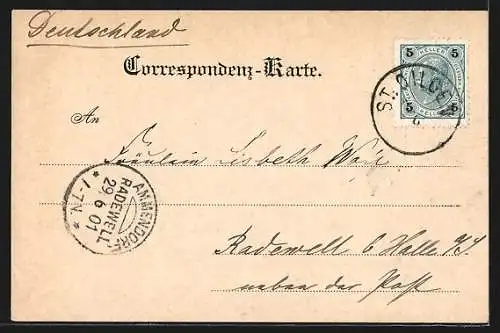 Deutschland
Correspondenz-Karte.
5 HELLER 5
ST. GILGEN
6
5 5
An
Fräulein Lisbeth
AMMENDORF
RADEWELL
29 6 01
* 1-7 N. *
Radewell b/Halle a/S
neben der Post